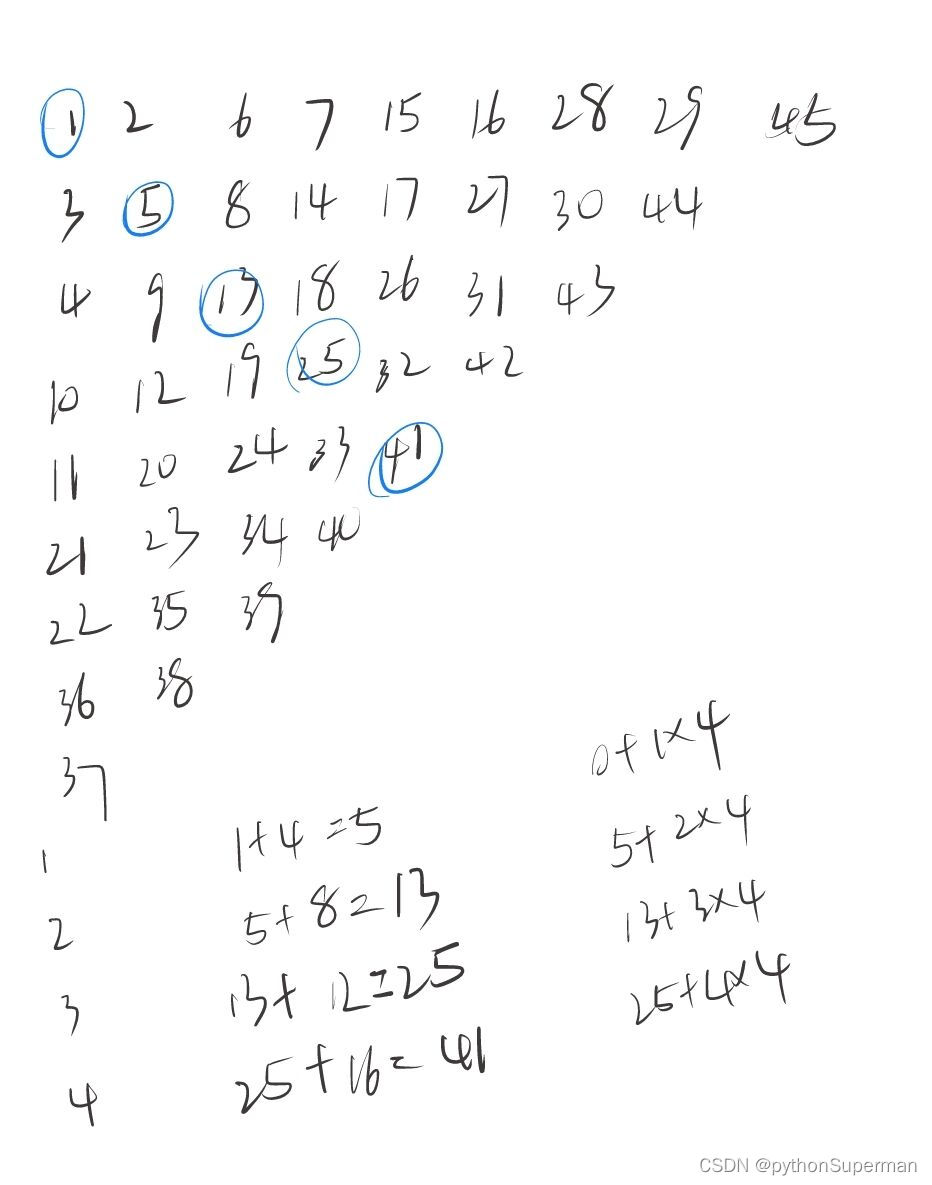 1 2 6 7 15 16 28 29 45
3 5 8 14 17 27 30 44
4 9 13 18 26 31 43
10 12 19 25 32 42
11 20 24 33 41
21 23 34 40
22 35 39
36 38
37
0+1×4
1
1+4=5
5+2×4
2
5+8=13
13+3×4
3
13+12=25
25+4×4
4
25+16=41
CSDN @pythonSuperman